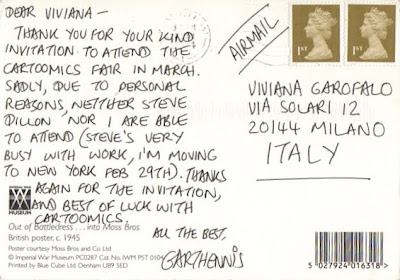 DEAR VIVIANA —
THANK YOU FOR YOUR KIND
INVITATION TO ATTEND THE
CARTOOMICS FAIR IN MARCH.
SADLY, DUE TO PERSONAL
REASONS, NEITHER STEVE
DILLON NOR I ARE ABLE
TO ATTEND (STEVE'S VERY
BUSY WITH WORK, I'M MOVING
TO NEW YORK FEB 29TH). THANKS
AGAIN FOR THE INVITATION,
AND BEST OF LUCK WITH
CARTOOMICS.
ALL THE BEST,
GARTH ENNIS
AIRMAIL
1ST
1ST
VIVIANA GAROFALO
VIA SOLARI 12
20144 MILANO
ITALY
IWM
MUSEUM
Out of Battledress . . . into Moss Bros
British poster, c. 1945
Poster courtesy Moss Bros and Co Ltd
© Imperial War Museum PC0287 Cat. No. IWM PST 0104
Printed by Blue Cube Ltd Denham UB9 5ED
5 027924 016318 >